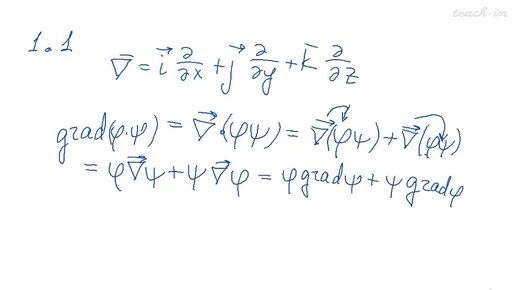 teach-in
1.1
∇⃗ = i⃗ ∂/∂x + j⃗ ∂/∂y + k̄ ∂/∂z
grad(φ·ψ) = ∇⃗·(φψ) = ∇⃗(φψ) + ∇⃗(φψ)
= φ∇⃗ψ + ψ∇⃗φ = φ gradψ + ψ gradφ